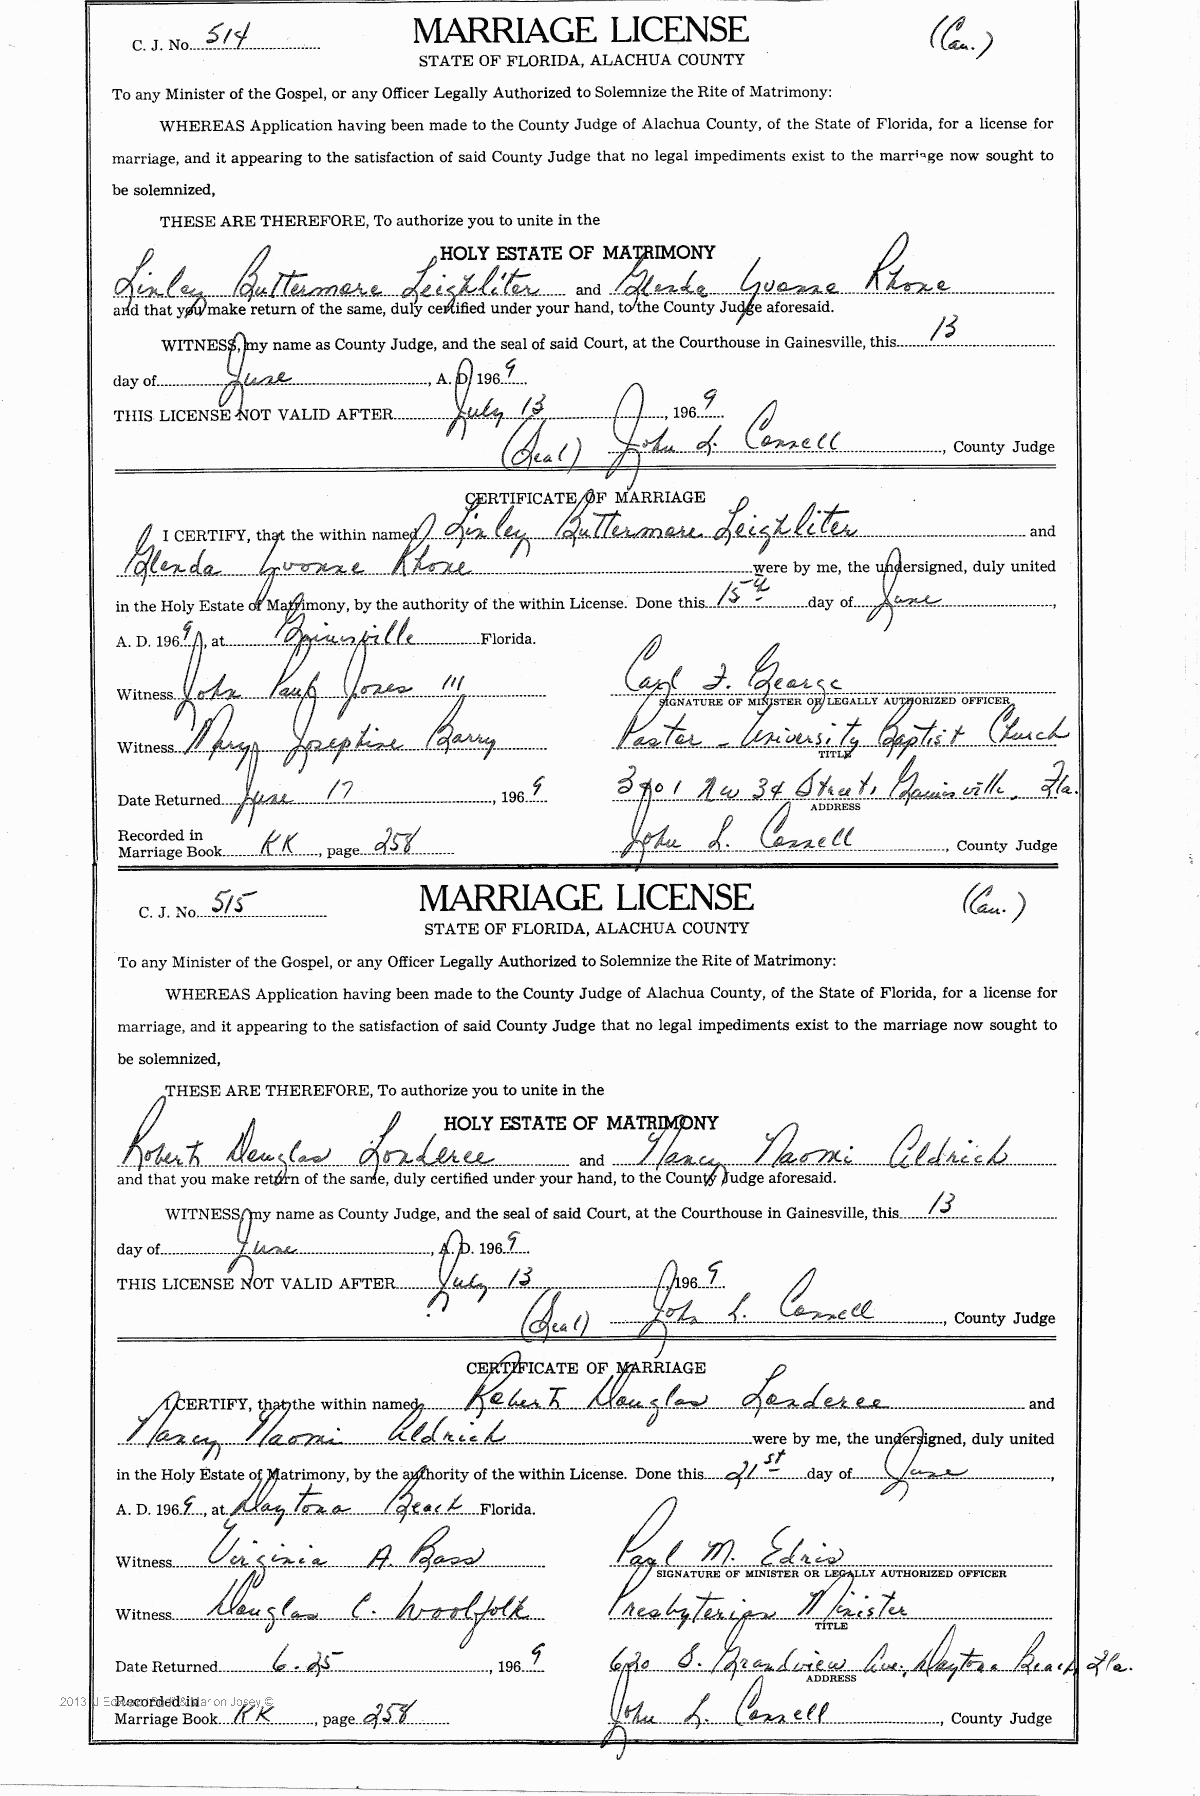 C. J. No. 514 MARRIAGE LICENSE (Cau.)
STATE OF FLORIDA, ALACHUA COUNTY
To any Minister of the Gospel, or any Officer Legally Authorized to Solemnize the Rite of Matrimony:
WHEREAS Application having been made to the County Judge of Alachua County, of the State of Florida, for a license for
marriage, and it appearing to the satisfaction of said County Judge that no legal impediments exist to the marriage now sought to
be solemnized,
THESE ARE THEREFORE, To authorize you to unite in the
HOLY ESTATE OF MATRIMONY
Linley Buttermore Leighliter and Glenda Yvonne Rhone
and that you make return of the same, duly certified under your hand, to the County Judge aforesaid.
WITNESS, my name as County Judge, and the seal of said Court, at the Courthouse in Gainesville, this 13
day of June, A. D. 1969
THIS LICENSE NOT VALID AFTER July 13, 1969
(Seal) John L. Connell, County Judge
CERTIFICATE OF MARRIAGE
I CERTIFY, that the within named Linley Buttermore Leighliter and
Glenda Yvonne Rhone were by me, the undersigned, duly united
in the Holy Estate of Matrimony, by the authority of the within License. Done this 15th day of June,
A. D. 1969, at Gainesville Florida.
Witness John Paul Jones III Carl F. George
SIGNATURE OF MINISTER OR LEGALLY AUTHORIZED OFFICER
Witness Mary Josephine Barry Pastor - University Baptist Church
TITLE
Date Returned June 17, 1969 3401 NW 34 Street, Gainesville, Fla.
ADDRESS
Recorded in
Marriage Book KK, page 258 John L. Connell, County Judge
C. J. No. 515 MARRIAGE LICENSE (Cau.)
STATE OF FLORIDA, ALACHUA COUNTY
To any Minister of the Gospel, or any Officer Legally Authorized to Solemnize the Rite of Matrimony:
WHEREAS Application having been made to the County Judge of Alachua County, of the State of Florida, for a license for
marriage, and it appearing to the satisfaction of said County Judge that no legal impediments exist to the marriage now sought to
be solemnized,
THESE ARE THEREFORE, To authorize you to unite in the
HOLY ESTATE OF MATRIMONY
Robert Douglas Londeree and Nancy Naomi Aldrich
and that you make return of the same, duly certified under your hand, to the County Judge aforesaid.
WITNESS, my name as County Judge, and the seal of said Court, at the Courthouse in Gainesville, this 13
day of June, A. D. 1969
THIS LICENSE NOT VALID AFTER July 13, 1969
(Seal) John L. Connell, County Judge
CERTIFICATE OF MARRIAGE
I CERTIFY, that the within named Robert Douglas Londeree and
Nancy Naomi Aldrich were by me, the undersigned, duly united
in the Holy Estate of Matrimony, by the authority of the within License. Done this 21st day of June,
A. D. 1969, at Daytona Beach Florida.
Witness Virginia A. Bass Paul M. Edris
SIGNATURE OF MINISTER OR LEGALLY AUTHORIZED OFFICER
Witness Douglas C. Woolfolk Presbyterian Minister
TITLE
Date Returned 6-25, 1969 620 S. Grandview Ave., Daytona Beach, Fla.
ADDRESS
Recorded in
Marriage Book KK, page 258 John L. Connell, County Judge